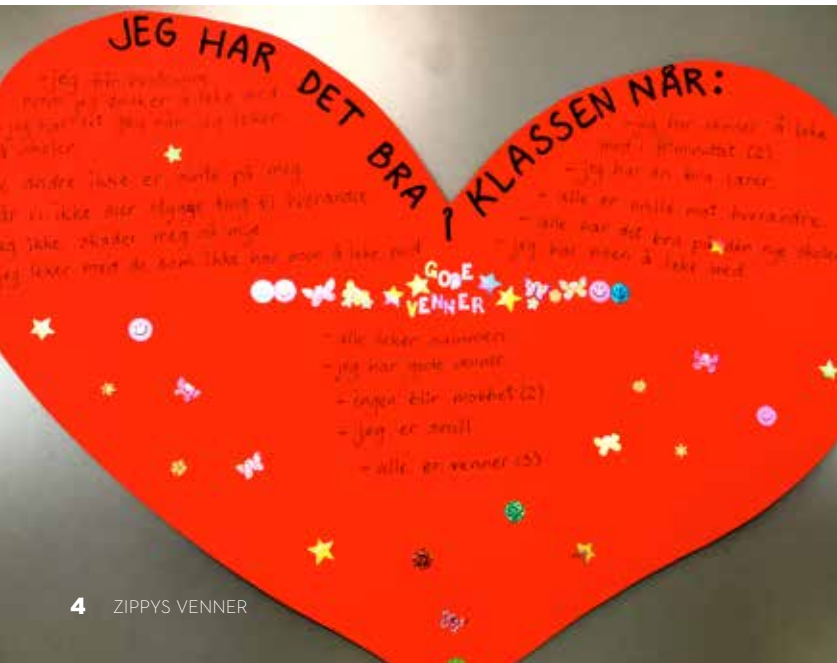 JEG HAR DET BRA I KLASSEN NÅR:
- jeg blir
jeg ønsker å leke med
jeg har det gøy når jeg leker
på skolen
andre ikke er sinte på meg
vi ikke sier stygge ting til hverandre
jeg ikke skader meg så mye
jeg leker med de som ikke har noen å leke med
- jeg har venner å leke
med i friminuttet (2)
- jeg har en bra lærer
- alle er snille mot hverandre
- alle har det bra på den nye skolen
- jeg har noen å leke med
GODE
VENNER
- alle leker sammen
- jeg har gode venner
- ingen blir mobbet (2)
- jeg er snill
- alle er venner (3)
4 ZIPPYS VENNER